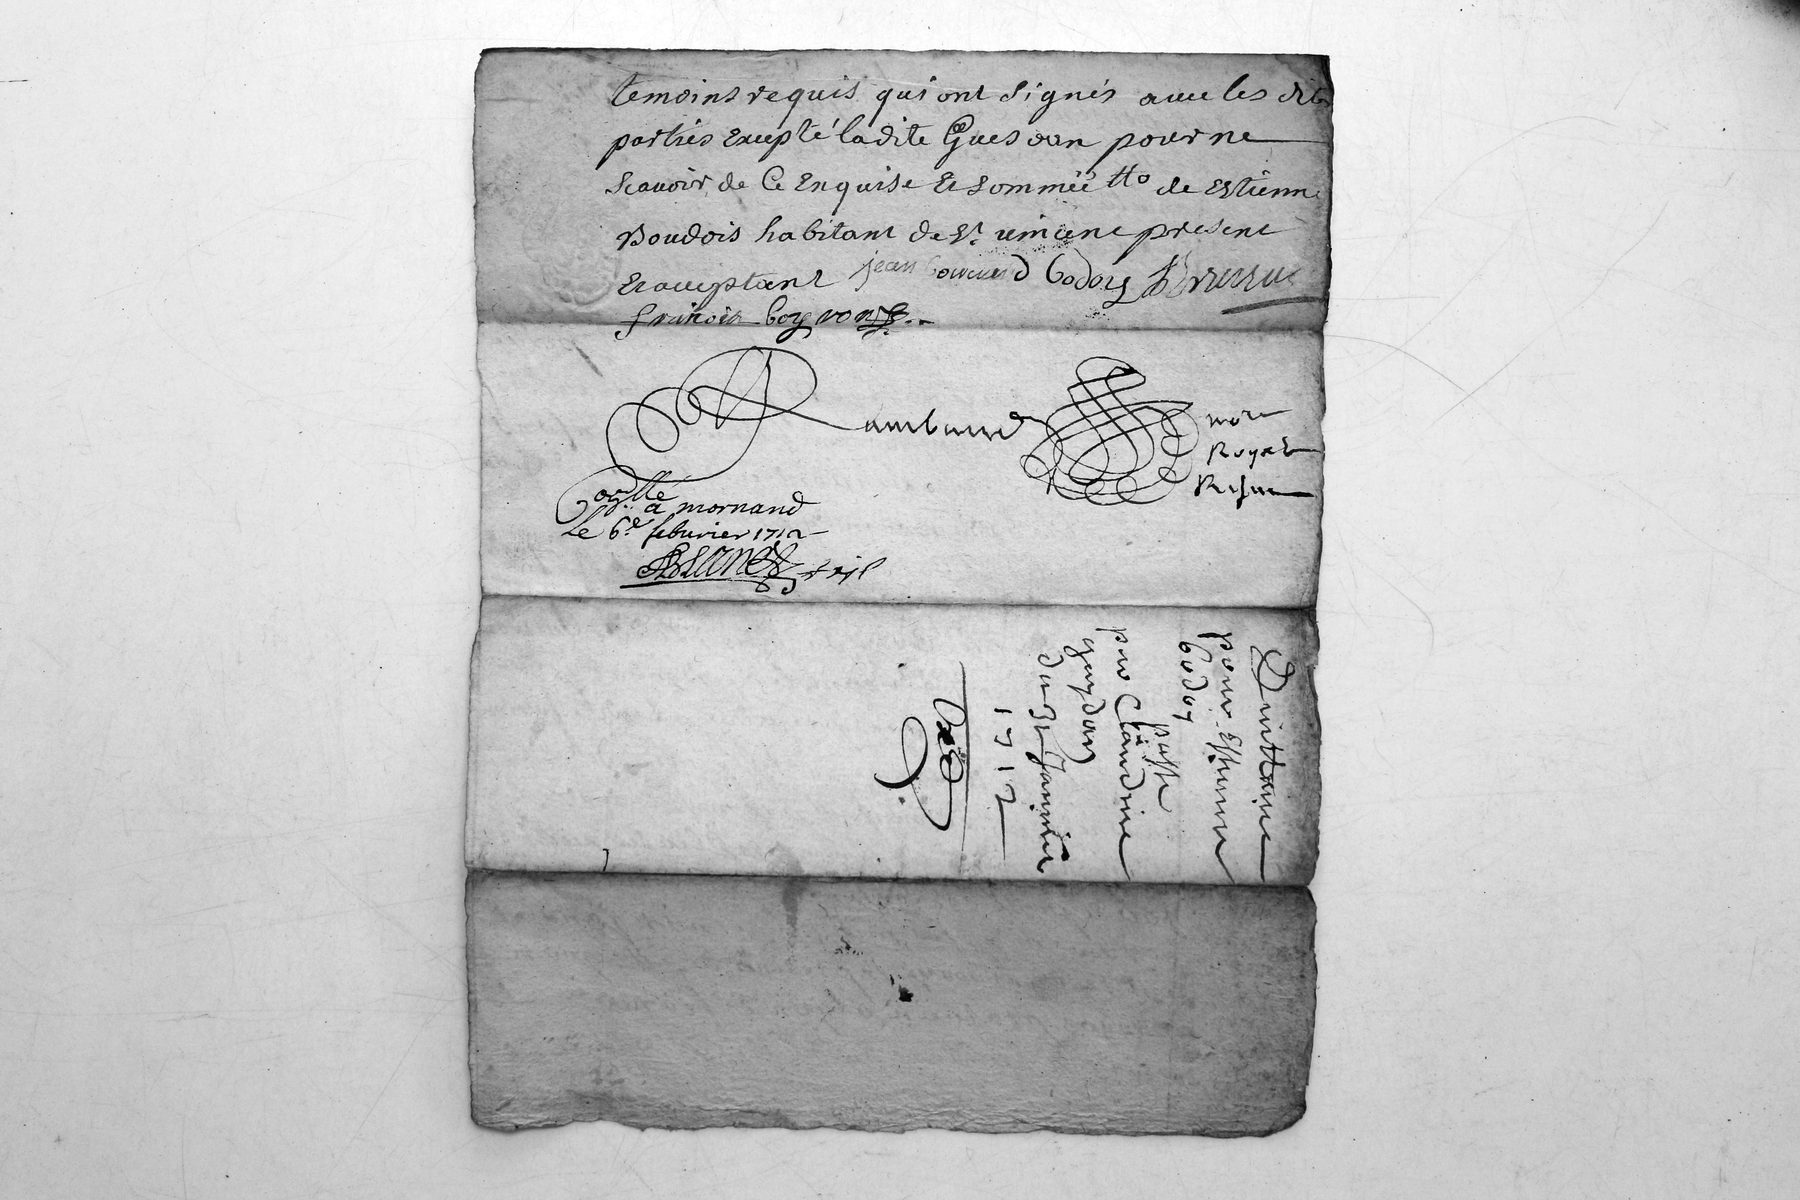 temoins requis qui ont signés avec les dites
parties Excepté ladite Guesdan pour ne
scavoir de Ce Enquise Et sommée tto de Estienne
Boudois habitant de St vincent present
Et acceptant jean bouvard bodoy
francois boyron
Rambaud nore
Royal
Con.llé a mornand
Le 6e febvrier 1712
Quittance
pour Estienne
bodoy
passée
par Claudine
guesdan
du 31 Janvier
1712